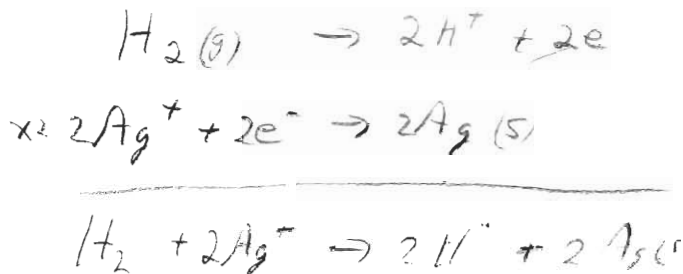 H₂(g) → 2H⁺ + 2e
x2 2Ag⁺ + 2e⁻ → 2Ag (s)
H₂ + 2Ag⁺ → 2H⁺ + 2Ag(s